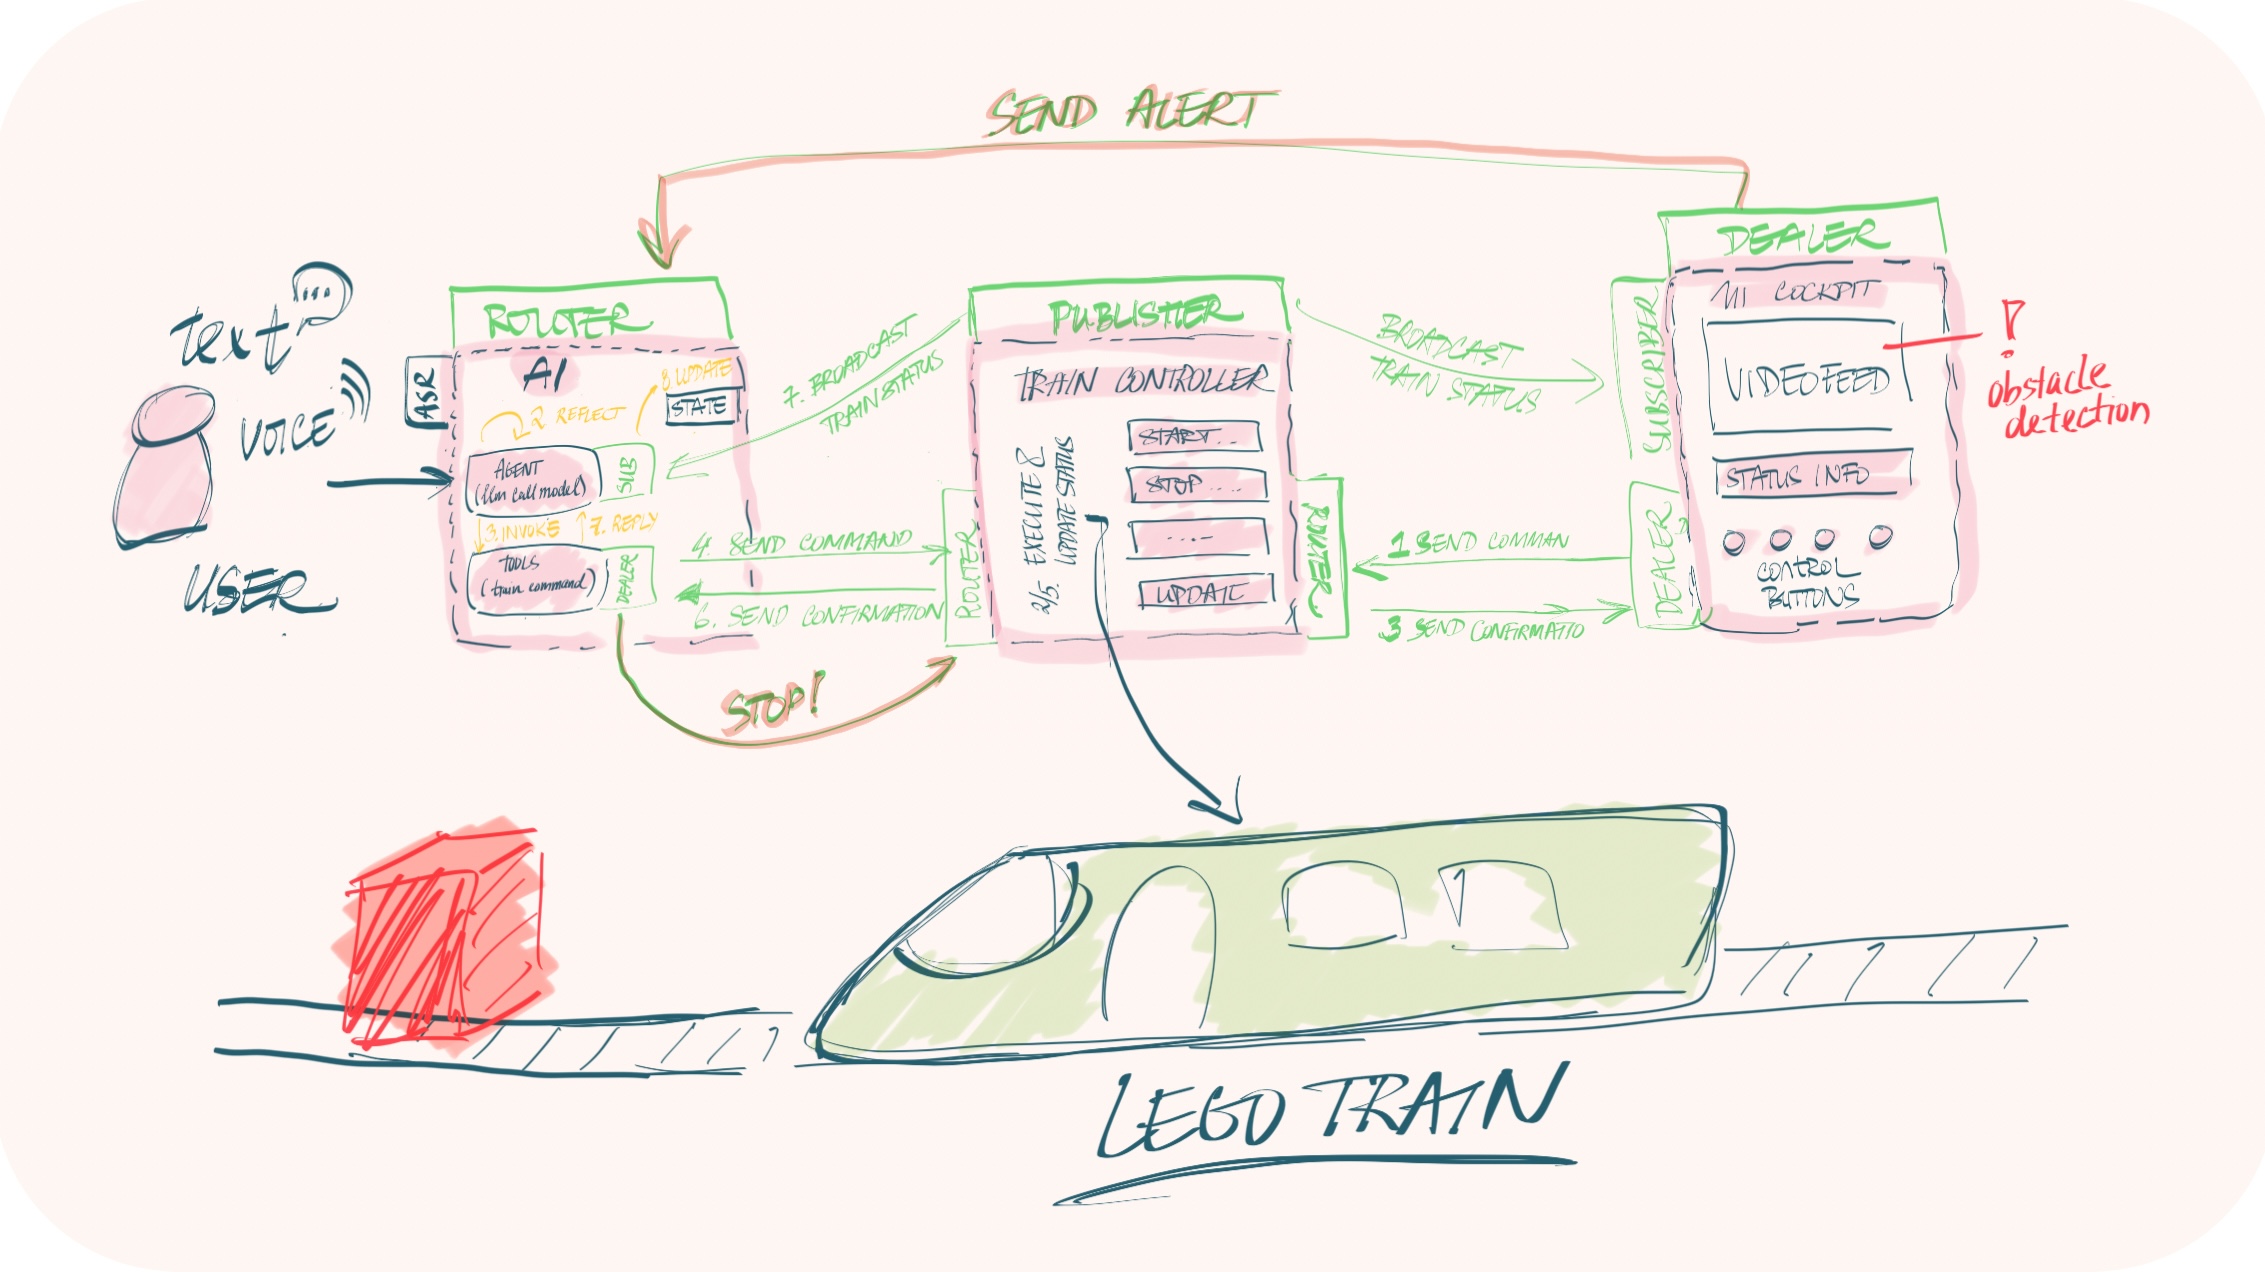 SEND ALERT
text
...
VOICE
USER
ASR
ROUTER
AI
8. UPDATE
STATE
2 REFLECT
AGENT
(llm call model)
SUB
3. INVOKE
7. REPLY
TOOLS
(train command)
DEALER
7. BROADCAST
TRAIN STATUS
4. SEND COMMAND
6. SEND CONFIRMATION
STOP!
ROUTER
PUBLISHER
TRAIN CONTROLLER
2/5. EXECUTE &
UPDATE STATUS
START...
STOP....
....
UPDATE
ROUTER
BROADCAST
TRAIN STATUS
1 SEND COMMAN
3 SEND CONFIRMATIO
SUBSCRIBER
DEALER
DEALER
COCKPIT
VIDEOFEED
STATUS INFO
CONTROL
BUTTONS
!
obstacle
detection
LEGO TRAIN